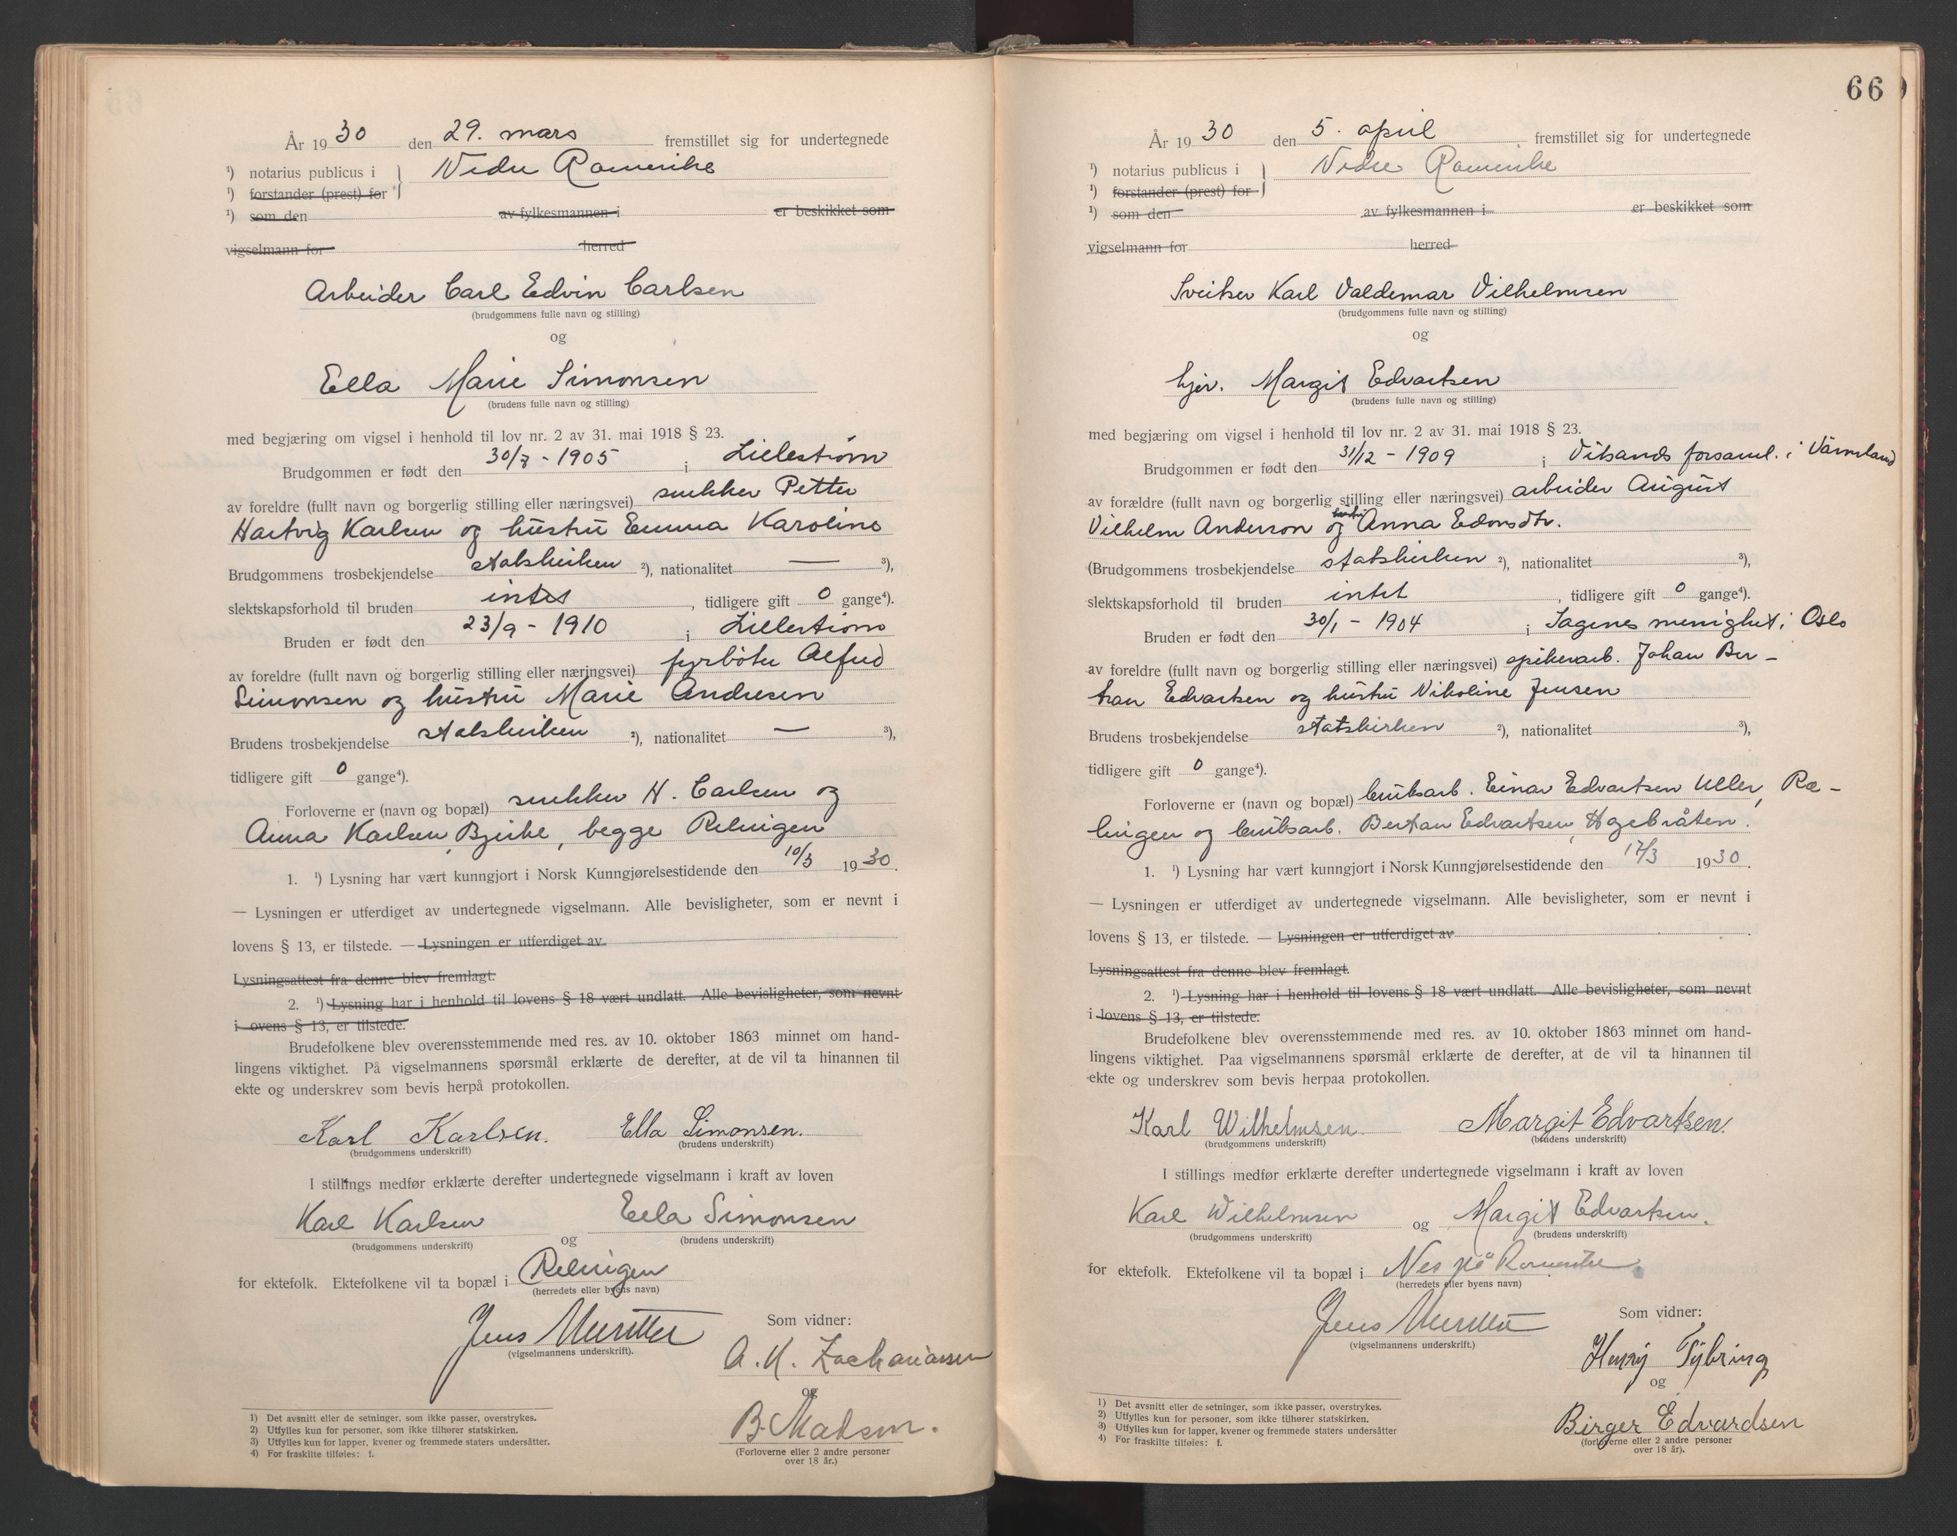 År 1930 den 29. mars fremstillet sig for undertegnede
¹) notarius publicus i Nedre Romerike
¹) forstander (prest) for
¹) som den av fylkesmannen i er beskikket som
vigselmann for herred
Arbeider Carl Edvin Carlsen
(brudgommens fulle navn og stilling)
og
Ella Marie Simonsen
(brudens fulle navn og stilling)
med begjæring om vigsel i henhold til lov nr. 2 av 31. mai 1918 § 23.
Brudgommen er født den 30/7 - 1905 i Lillestrøm
av foreldre (fullt navn og borgerlig stilling eller næringsvei) snekker Petter
Hartvig Karlsen og hustru Emma Karoline
Brudgommens trosbekjendelse statskirken ²), nationalitet — ³),
slektskapsforhold til bruden intet, tidligere gift 0 gange⁴).
Bruden er født den 23/9 - 1910 i Lillestrøm
av foreldre (fullt navn og borgerlig stilling eller næringsvei) fyrbøter Alfred
Simonsen og hustru Marie Andresen
Brudens trosbekjendelse statskirken ²), nationalitet — ³),
tidligere gift 0 gange⁴).
Forloverne er (navn og bopæl) snekker H. Carlsen og
Anna Karlsen, Bjerke, begge Relingen
1. ¹) Lysning har vært kunngjort i Norsk Kunngjørelsestidende den 10/3 1930.
— Lysningen er utferdiget av undertegnede vigselmann. Alle bevisligheter, som er nevnt i
lovens § 13, er tilstede. — Lysningen er utferdiget av
Lysningsattest fra denne blev fremlagt.
2. ¹) Lysning har i henhold til lovens § 18 vært undlatt. Alle bevisligheter, som nevnt
i lovens § 13, er tilstede.
Brudefolkene blev overensstemmende med res. av 10. oktober 1863 minnet om hand-
lingens viktighet. På vigselmannens spørsmål erklærte de derefter, at de vil ta hinannen til
ekte og underskrev som bevis herpå protokollen.
Karl Karlsen. Ella Simonsen.
(brudgommens underskrift) (brudens underskrift)
I stillings medfør erklærte derefter undertegnede vigselmann i kraft av loven
Karl Karlsen og Ella Simonsen
(brudgommens underskrift) (brudens underskrift)
for ektefolk. Ektefolkene vil ta bopæl i Relingen
(herredets eller byens navn)
Jens
(vigselmannens underskrift).
Som vidner:
A. K. Zachariassen
og
B. Madsen.
(Forloverne eller 2 andre personer
over 18 år.)
1) Det avsnitt eller de setninger, som ikke passer, overstrykes.
2) Utfylles kun for personer, som ikke tilhører statskirken.
3) Utfylles kun for lapper, kvener og fremmede staters undersåtter.
4) For fraskilte tilføies: f.
66
År 1930 den 5. april fremstillet sig for undertegnede
¹) notarius publicus i Nedre Romerike
¹) forstander (prest) for
¹) som den av fylkesmannen i er beskikket som
vigselmann for herred
Sveitser Karl Valdemar Vilhelmsen
(brudgommens fulle navn og stilling)
og
hjv. Margit Edvartsen
(brudens fulle navn og stilling)
med begjæring om vigsel i henhold til lov nr. 2 av 31. mai 1918 § 23.
Brudgommen er født den 31/12 - 1909 i Vitsands forsaml. i Värmland
av forældre (fullt navn og borgerlig stilling eller næringsvei) arbeider August
Vilhelm Anderson og hustru Anna Edvinsdtr.
(Brudgommens trosbekjendelse statskirken ²), nationalitet ³),
slektskapsforhold til bruden intet, tidligere gift 0 gange⁴).
Bruden er født den 30/1 - 1904 i Sagenes menighet i Oslo
av foreldre (fullt navn og borgerlig stilling eller næringsvei) spikerarb. Johan Ber-
tran Edvartsen og hustru Nikoline Jensen
Brudens trosbekjendelse statskirken ²), nationalitet ³),
tidligere gift 0 gange⁴).
Forloverne er (navn og bopæl) bruksarb. Einar Edvartsen Uller, Ræ-
lingen og bruksarb. Bertan Edvartsen, Hagebråten.
1. ¹) Lysning har vært kunngjort i Norsk Kunngjørelsestidende den 17/3 1930.
— Lysningen er utferdiget av undertegnede vigselmann. Alle bevisligheter, som er nevnt i
lovens § 13, er tilstede. — Lysningen er utferdiget av
Lysningsattest fra denne blev fremlagt.
2. ¹) Lysning har i henhold til lovens § 18 vært undlatt. Alle bevisligheter, som nevnt
i lovens § 13, er tilstede.
Brudefolkene blev overensstemmende med res. av 10. oktober 1863 minnet om hand-
lingens viktighet. Paa vigselmannens spørsmål erklærte de derefter, at de vil ta hinannen til
ekte og underskrev som bevis herpaa protokollen.
Karl Wilhelmsen. Margit Edvartsen.
(brudgommens underskrift) (brudens underskrift)
I stillings medfør erklærte derefter undertegnede vigselmann i kraft av loven
Karl Wilhelmsen og Margit Edvartsen.
(brudgommens underskrift) (brudens underskrift)
for ektefolk. Ektefolkene vil ta bopæl i Nes på Romerike.
(herredets eller byens navn)
Jens
(vigselmannens underskrift).
Som vidner:
Henry Tybring
og
Birger Edvardsen
(forloverne eller 2 andre personer
over 18 år).
1) Det avsnitt eller de setninger, som ikke passer, overstrykes.
2) Utfylles kun for personer, som ikke tilhører statskirken.
3) Utfylles kun for lapper, kvener og fremmede staters undersåtter
4) For fraskilte tilføies: f.